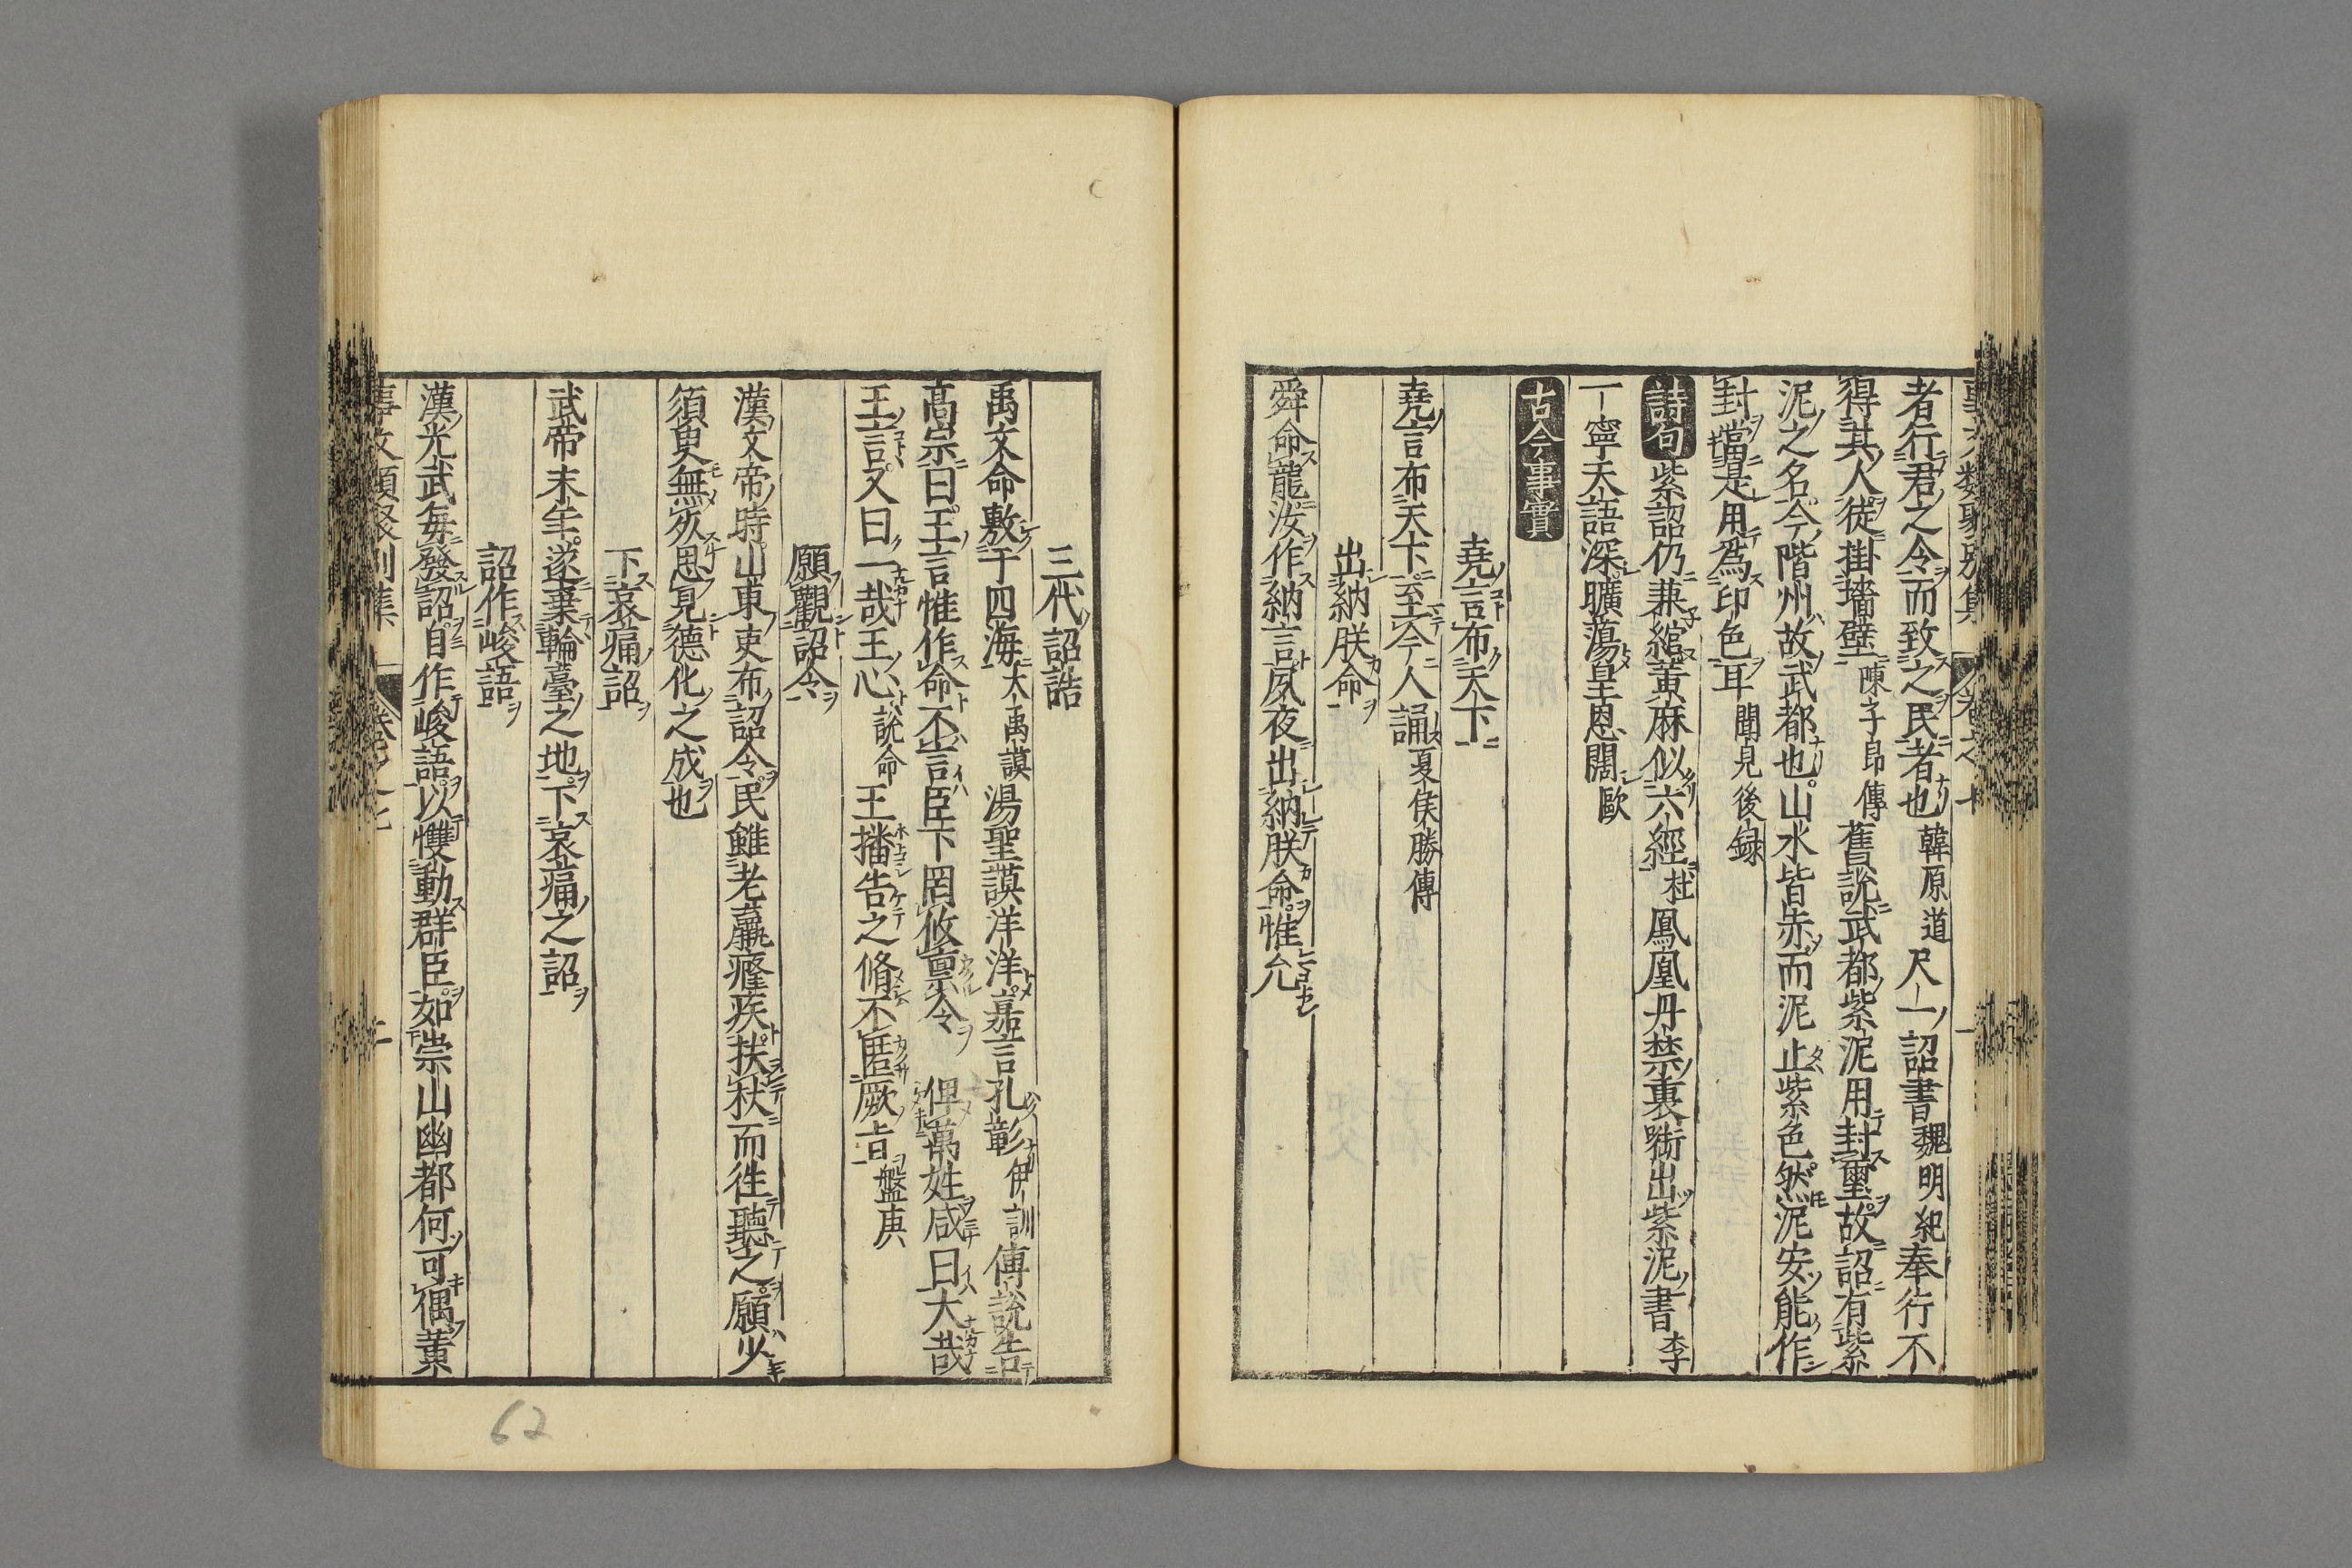 者行君之令而致之民者也 韓原道 尺一詔書 魏明紀 奉行不
得其人徒掛墻壁 陳子昂傳 舊說武都紫泥用封璽故詔有紫
泥之名今階州故武都也山水皆赤而泥止紫色然泥安能作
封當是用爲印色耳 聞見後録
詩句 紫詔仍兼綰黄麻似六經 杜 鳳凰丹禁裏啣出紫泥書 李
一寧天語深曠蕩皇恩闊 歐
古今事實
堯言布天下
堯言布天下至今人誦 夏侯勝傳
出納朕命
舜命龍汝作納言夙夜出納朕命惟允
三代詔誥
禹文命敷于四海 大禹謨 湯聖謨洋洋嘉言孔彰 伊訓 傅說告
高宗曰王言惟作命不言臣下罔攸禀令 俾萬姓咸曰大哉
王言又曰一哉王心 說命 王播告之脩不匿厥㫖 盤庚
願觀詔令
漢文帝時山東吏布詔令民雖老羸癃疾扶杖而徃聽之願少
須臾無死思見德化之成也
下哀痛詔
武帝末年遂棄輪臺之地下哀痛之詔
詔作峻語
漢光武每發詔自作峻語以㦬動群臣如崇山幽都何可偶黄
事文類聚別集 卷之七 二
62